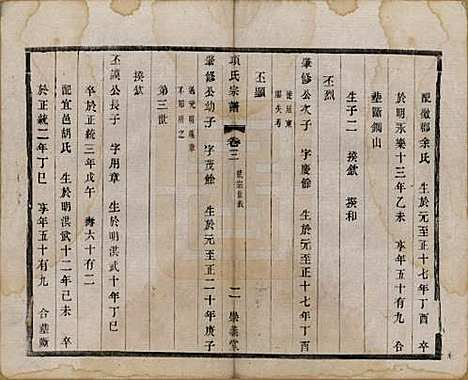 配徽鄉余氏 生於元至正十七年丁酉 卒
於明永樂十三年乙未 享年五十有九 合
墓斷鋼山
生子二 揆欽 揆和
丕烈
肇修公次子 字慶餘 生於元至正十七年丁酉
徙延東
闕失考
丕顯
項氏宗譜 卷三 二 樂義堂
肇修公幼子 字茂餘 生於元至正二十年庚子
第三世
揆欽
丕謨公長子 字用章 生於明洪武十年丁巳
卒於正統三年戊午 壽六十有二
配宜邑胡氏 生於明洪武十二年己未 卒
於正統二年丁巳 享年五十有九 合墓斷